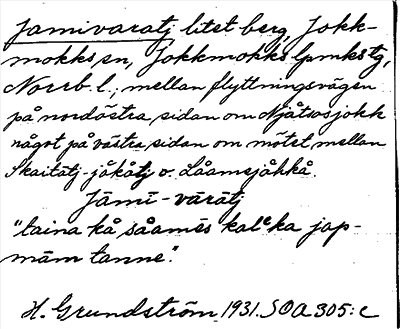 Jamivaratj litet berg, Jokk-
mokks sn, Jokkmokks lpmkstg,
Norrb. l.; mellan flyttningsvägen
på nordöstra sidan om Njåtsosjokk
något på västra sidan om mötet mellan
Skaitátj-jåkåtj o. Låamejåhkå.
Jāmī-vārātj
"taina kå såamēs kalᵉka jap-
mām tanne".
H. Grundström 1931. SOA 305:c